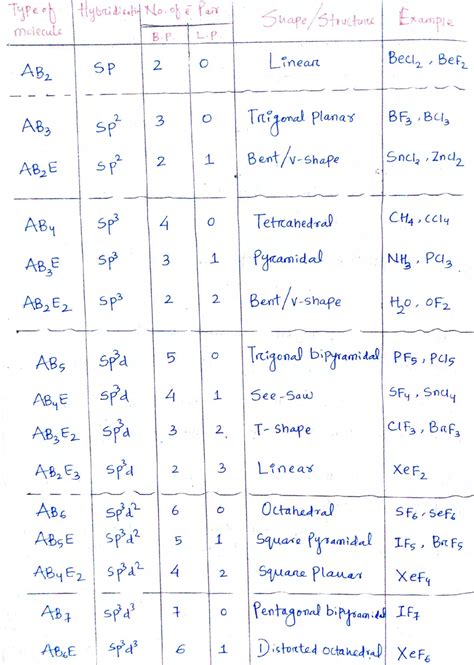 Type of molecule Hybridization No. of e Pair Shape/Structure Example
B.P. L.P
AB2 SP 2 0 Linear BeCl2, BeF2
AB3 SP2 3 0 Trigonal planar BF3, BCl3
AB2E SP2 2 1 Bent/v-shape SnCl2, ZnCl2
AB4 SP3 4 0 Tetrahedral CH4, CCl4
AB3E SP3 3 1 Pyramidal NH3, PCl3
AB2E2 SP3 2 2 Bent/v-shape H2O, OF2
AB5 SP3d 5 0 Trigonal bipyramidal PF5, PCl5
AB4E SP3d 4 1 See-Saw SF4, SnCl4
AB3E2 SP3d 3 2 T-shape ClF3, BrF3
AB2E3 SP3d 2 3 Linear XeF2
AB6 SP3d2 6 0 Octahedral SF6, SeF6
AB5E SP3d2 5 1 Square Pyramidal IF5, BrF5
AB4E2 SP3d2 4 2 Square Planar XeF4
AB7 SP3d3 7 0 Pentagonal bipyramidal IF7
AB6E SP3d3 6 1 Distorted octahedral XeF6